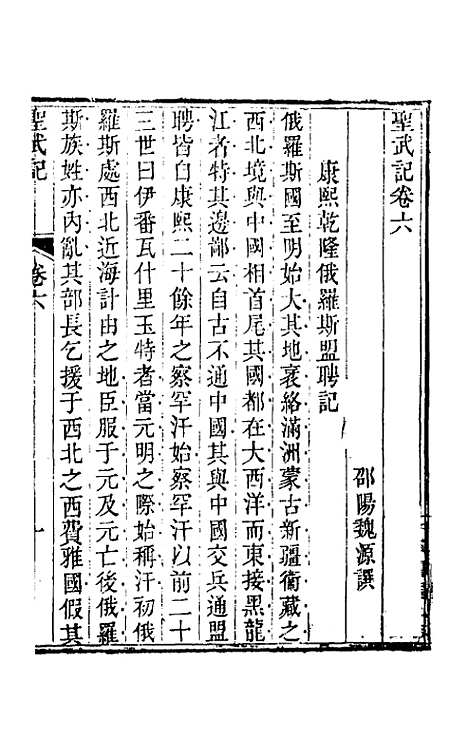 聖武記卷六
邵陽魏源譔
康熙乾隆俄羅斯盟聘記
俄羅斯國至明始大其地袤絡滿洲蒙古新疆衞藏之
西北境與中國相首尾其國都在大西洋而東接黑龍
江者特其邊鄙云自古不通中國其與中國交兵通盟
聘皆自康熙二十餘年之察罕汗始察罕汗以前二十
三世曰伊番瓦什里玉特者當元明之際始稱汗初俄
羅斯處西北近海計由之地臣服于元及元亡後俄羅
斯族姓亦內亂其部長乞援于西北之西費雅國假其
聖武記
卷六
一